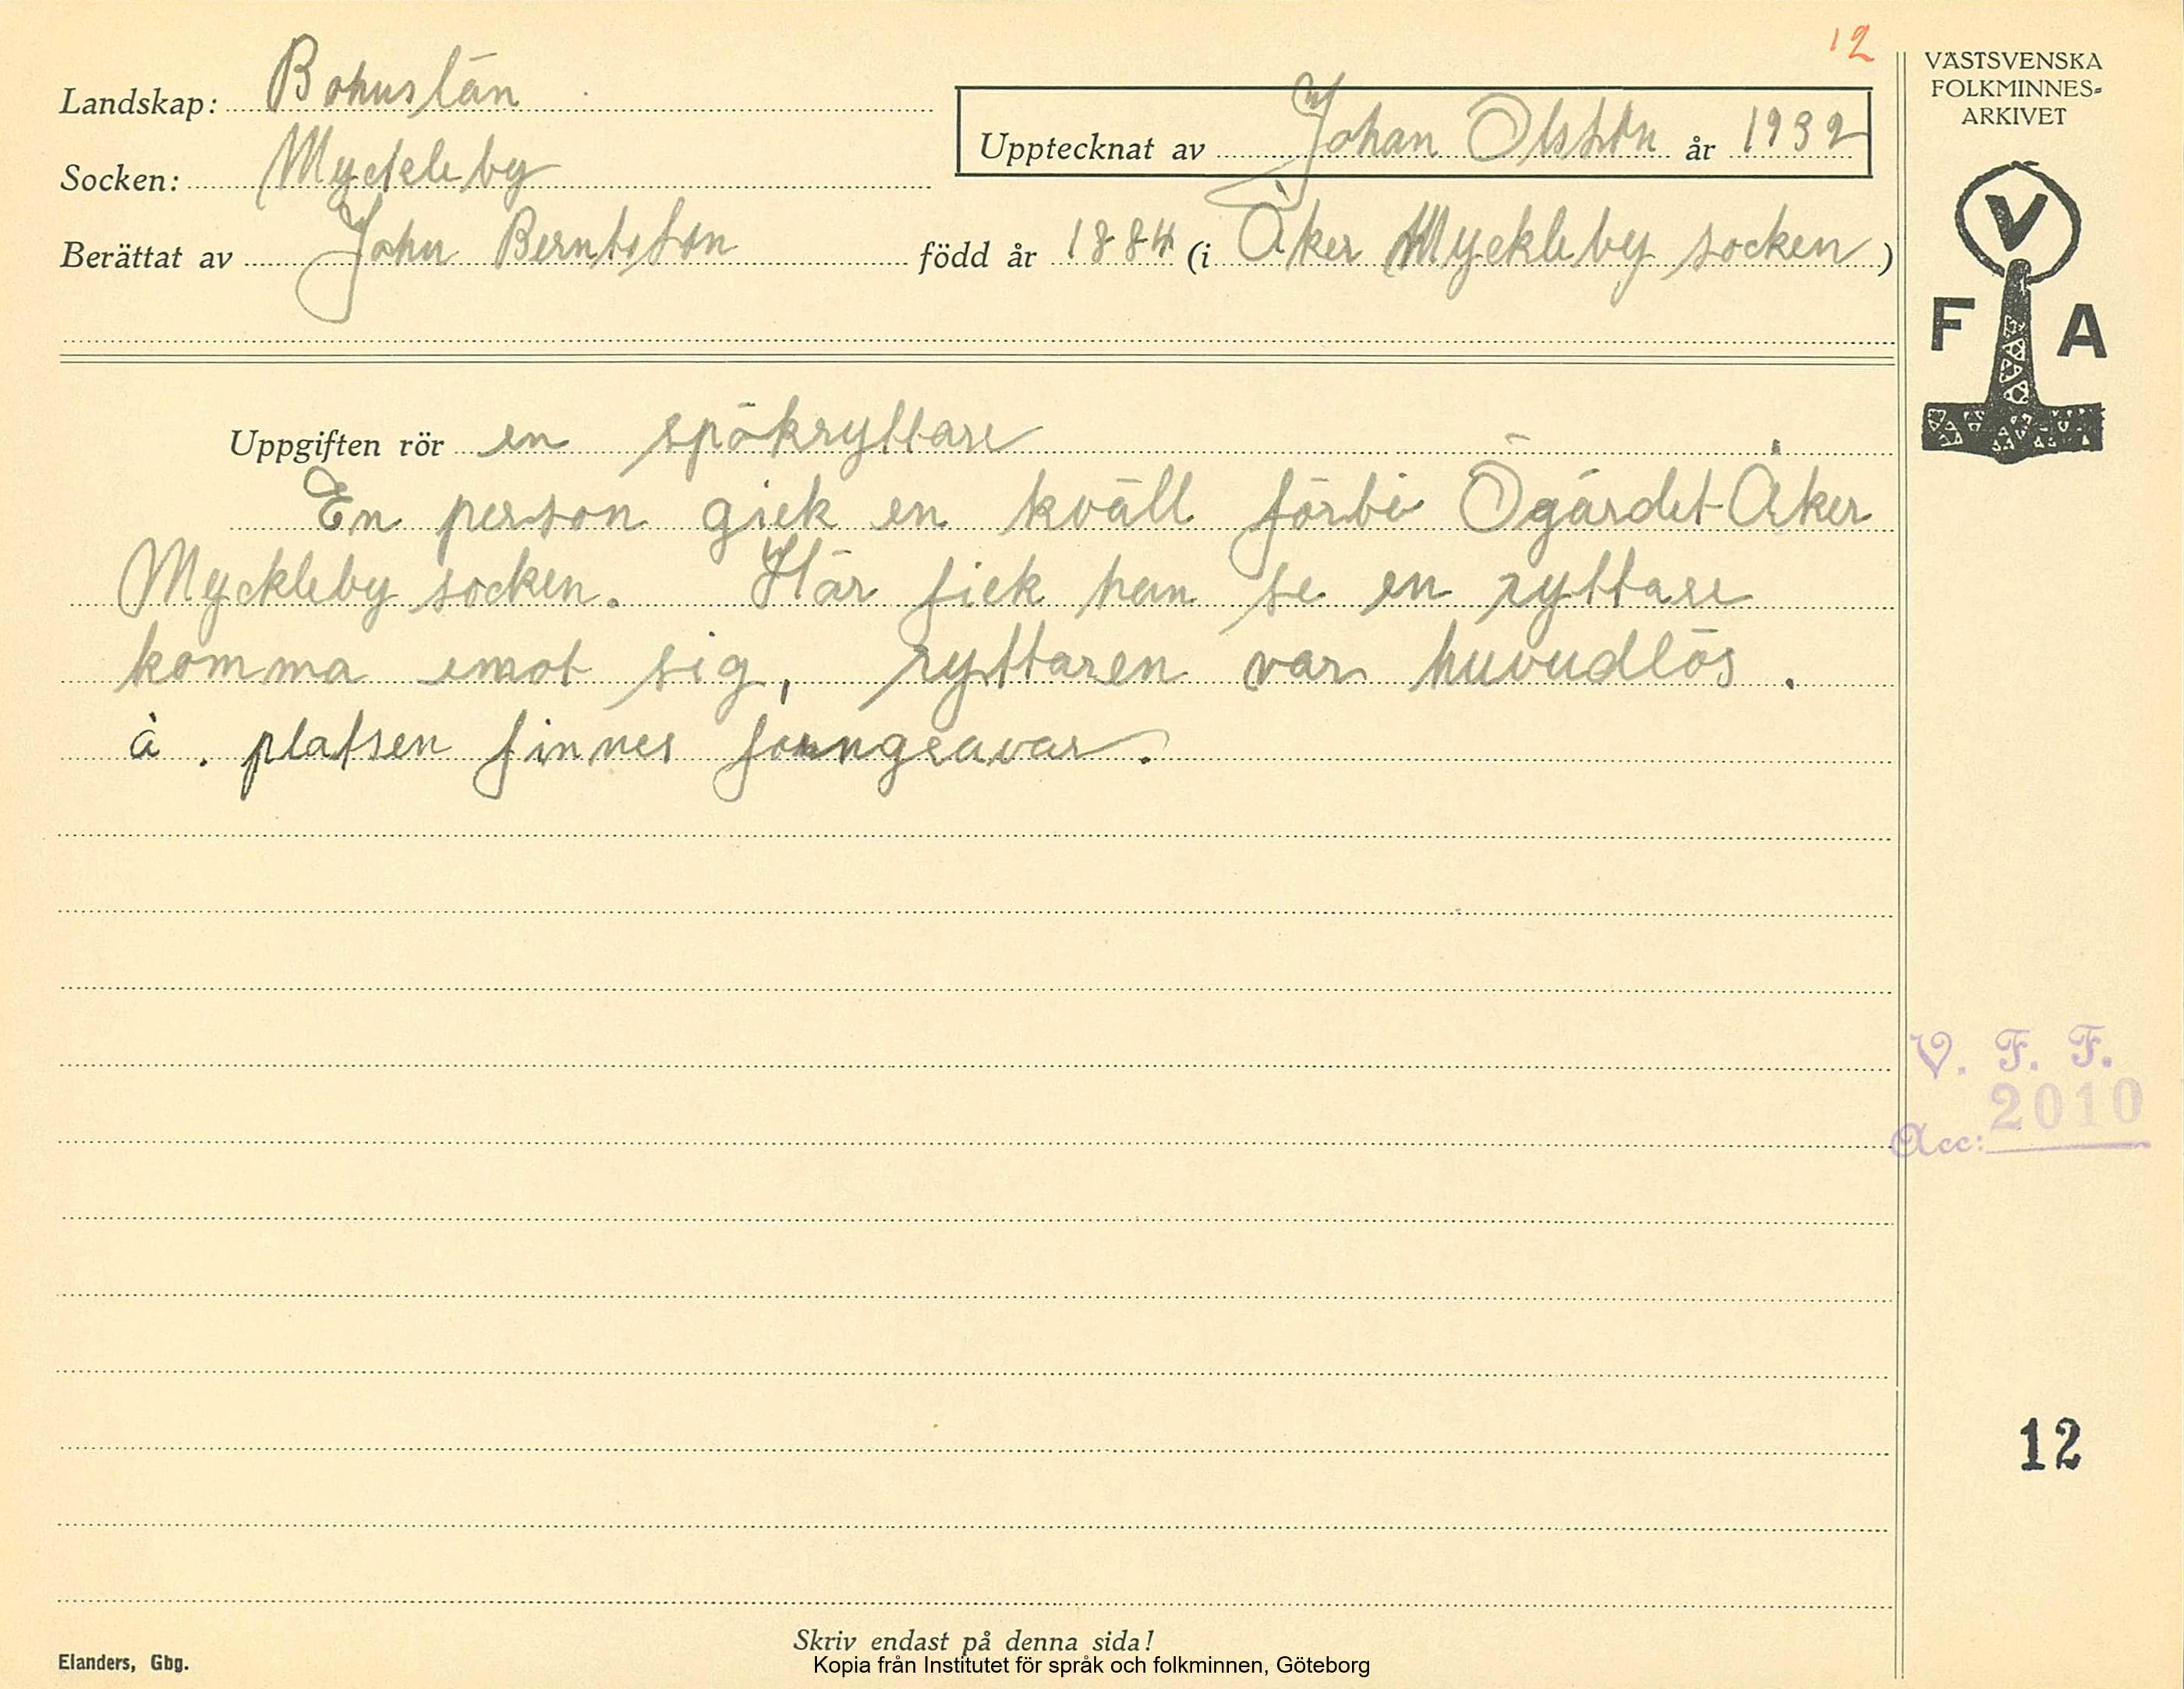 12
Landskap: Bohuslän
Socken: Myckleby
Upptecknat av Johan Olsson år 1932
Berättat av John Berntsson född år 1884 (i Åker Myckleby socken)
VÄSTSVENSKA
FOLKMINNES-
ARKIVET
V
F A
Uppgiften rör en spökryttare
En person gick en kväll förbi Ögärdet Åker
Myckleby socken. Här fick han se en ryttare
komma emot sig, ryttaren var huvudlös.
å. platsen finnes forngravar.
V. F. F.
Acc: 2010
12
Skriv endast på denna sida!
Elanders, Gbg.
Kopia från Institutet för språk och folkminnen, Göteborg